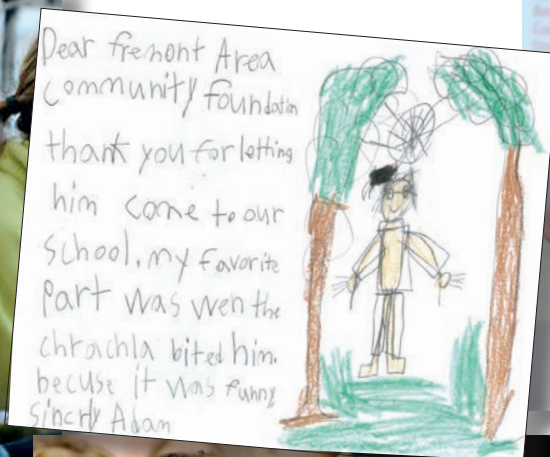 Dear fremont Area
community foundation
thank you for letting
him come to our
school. my favorite
Part was wen the
chrachla bited him.
becuse it was funny
sincrly Adam